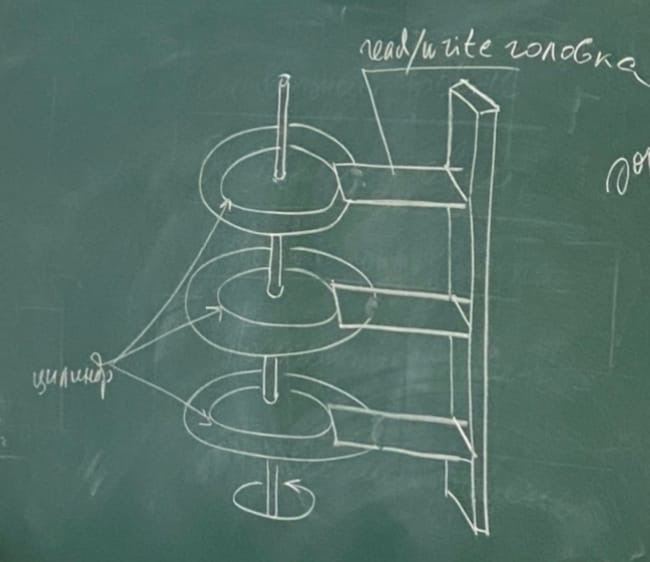 read/write головка
цилиндр